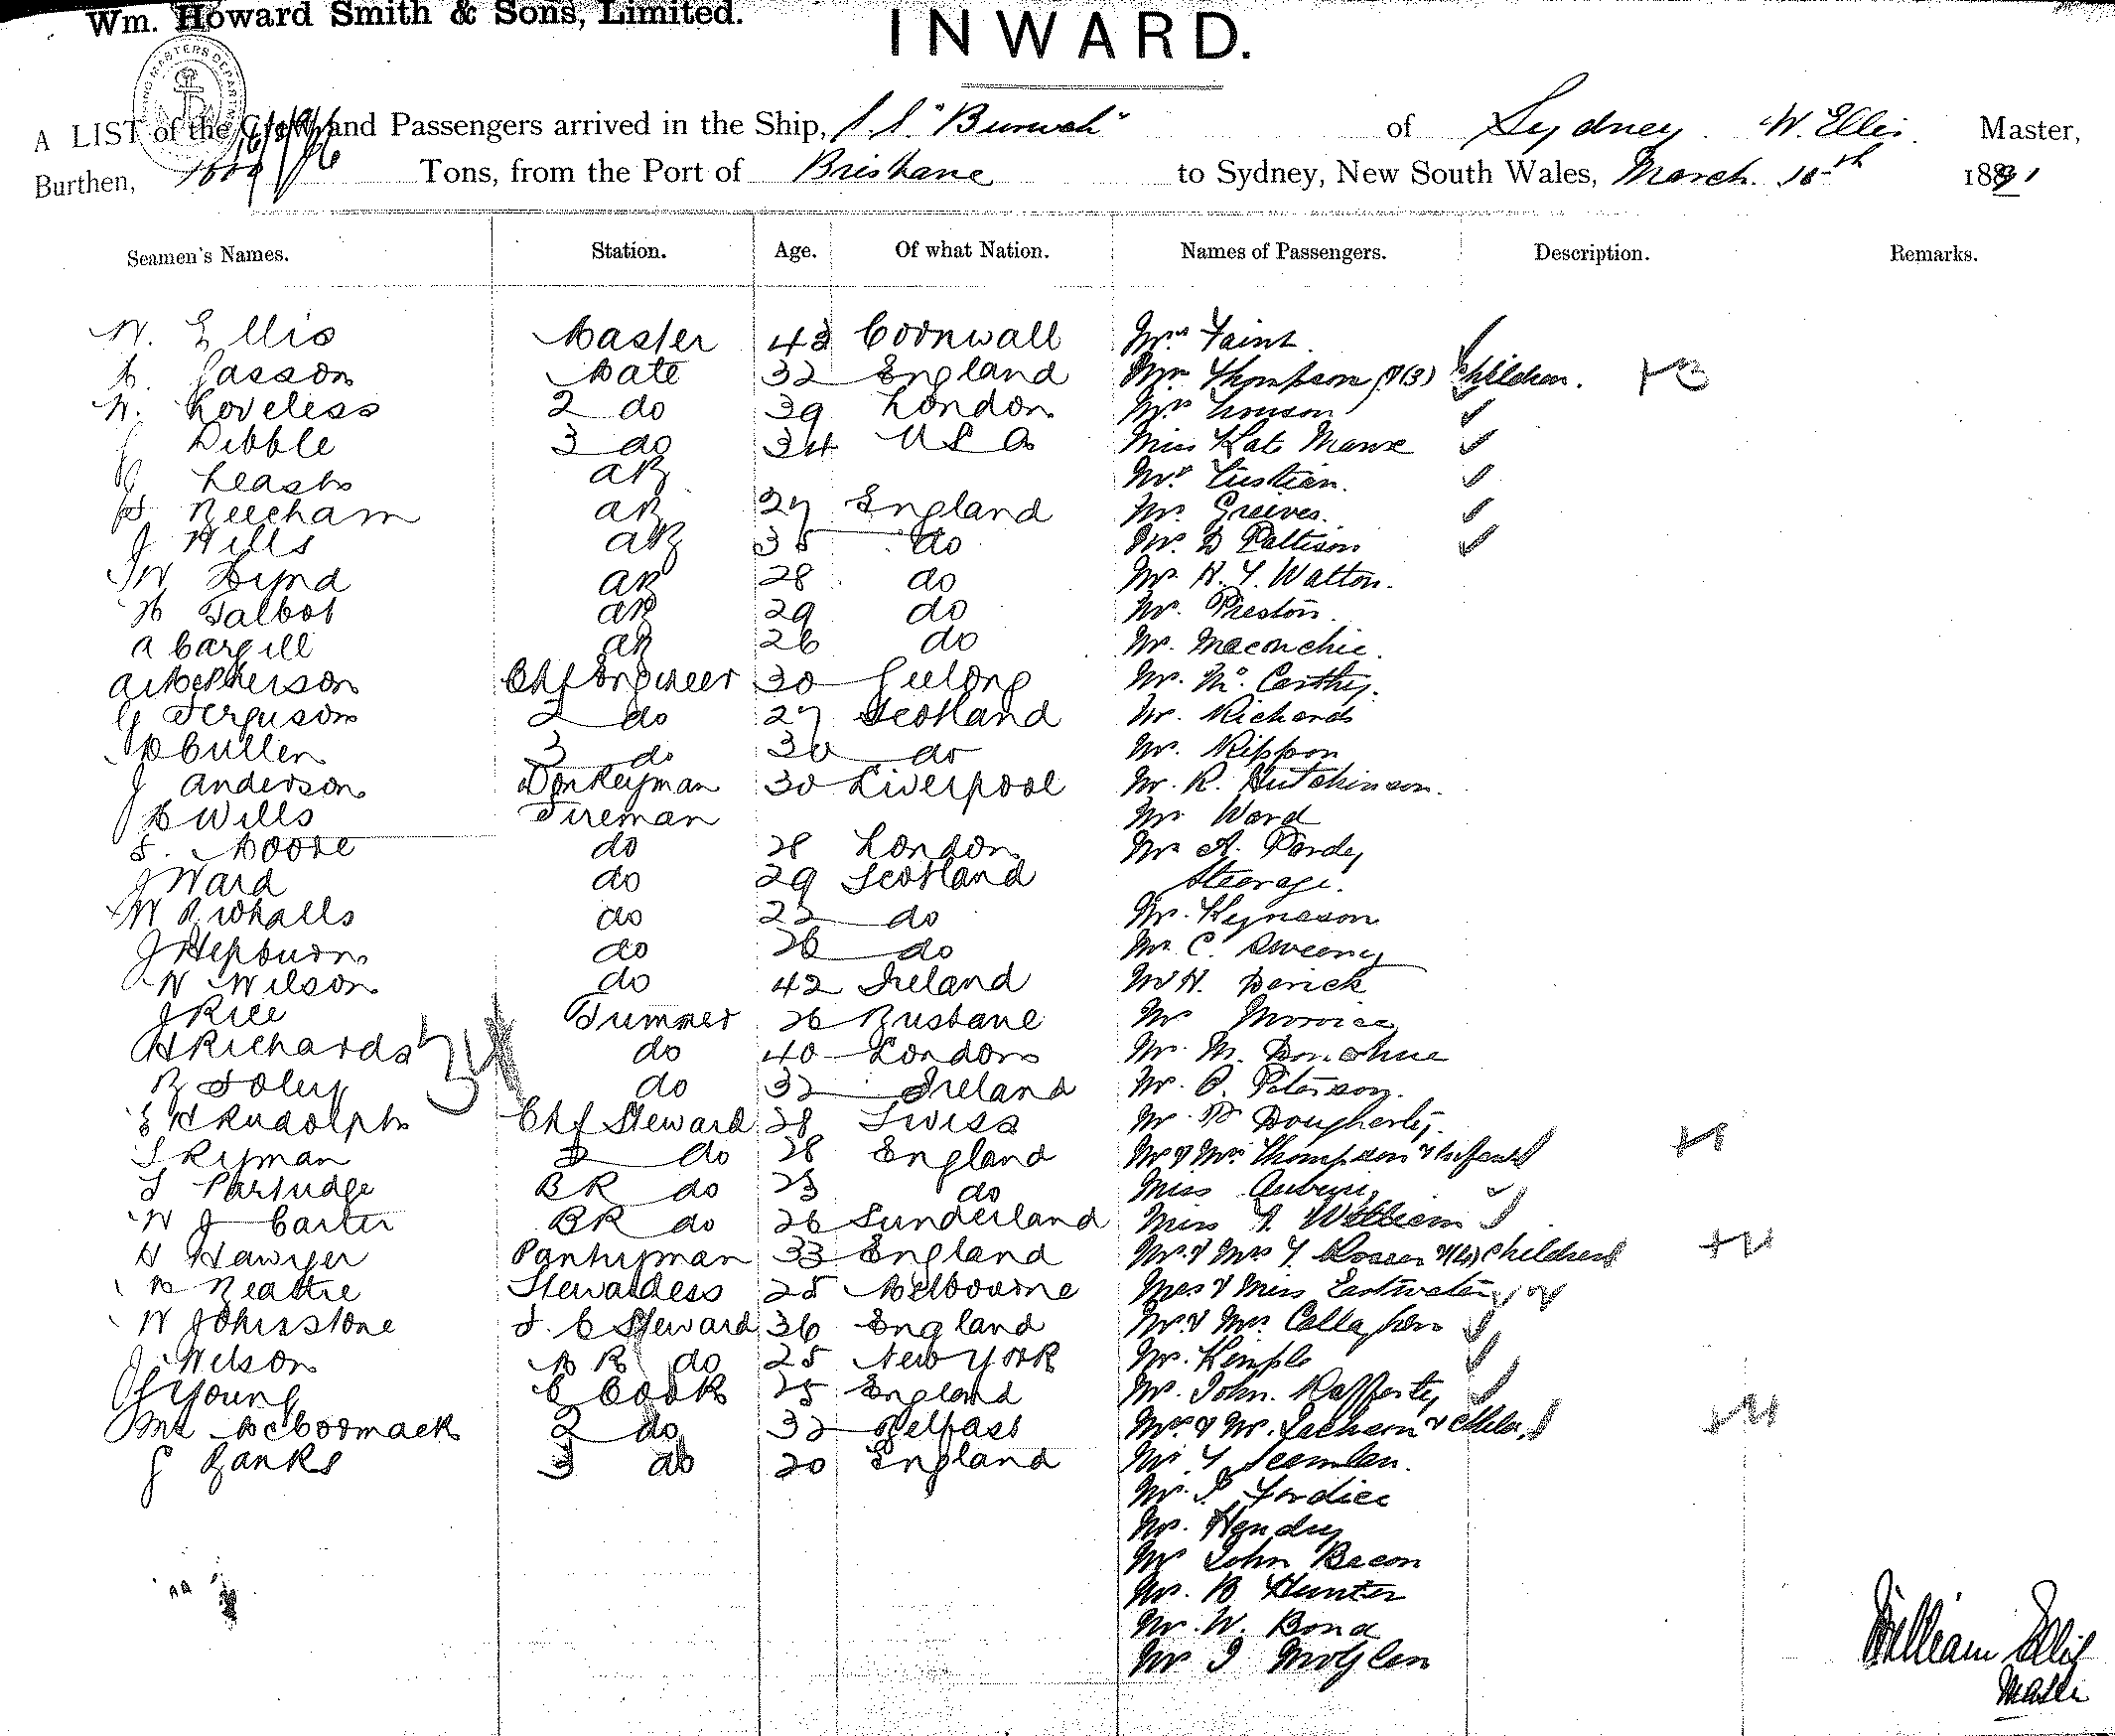 Wm. Howard Smith & Sons, Limited.
INWARD.
A LIST of the Crew and Passengers arrived in the Ship, S.S. "Burwah" of Sydney W. Ellis Master,
Burthen, Tons, from the Port of Brisbane to Sydney, New South Wales, March 1891
Seamen's Names. Station. Age. Of what Nation. Names of Passengers. Description. Remarks.
W. Ellis Master 43 Cornwall Mrs Faint.
Mate 32 England Mrs Thompson & (3) Children. +3
W. Loveless 2 do 39 London Mrs
J Dibble 3 do 34 U S A Miss Kate
J Leash AB Mrs
Beecham AB 27 England Mr. Greives.
J Hills AB 35 do Mr. D Pattison
W Hynd AB 28 do Mr. R. Y. Walton.
H Talbot AB 29 do Mr. Preston.
A Cargill AB 26 do Mr. Maconchie.
A McPherson Chf Engineer 30 Geelong Mr. Mc. Carthy.
G Ferguson 2 do 27 Scotland Mr. Richards
D Cullen 3 do 30 do Mr. Rippon
J Anderson Donkeyman 30 Liverpool Mr. R. Hutchinson.
H Wills Fireman Mr Ward
S. Moore do 28 London Mr A. Pardey
J Ward do 29 Scotland Steerage.
W R Whalls do 22 do Mr. Kynason
J Hepburn do 26 do Mr. C. Sweeny
W Wilson do 42 Ireland Mr H. Derick
J Rice Trimmer 26 Brisbane Mr
H Richards do 40 London Mr. M. Donohue
B Foley do 32 Ireland Mr. P. Peterson.
34
E H Rudolph Chf Steward 28 Swiss Mr. Dougherty.
S Ryman 2 do 28 England Mr & Mrs Thompson & Infant
S Partridge BR do 23 do Miss
W J Carter BR do 26 Sunderland Miss William
H Sawyer Pantryman 33 England Mr. & Mrs Y. & (4) Children
B Beattie Stewardess 25 Melbourne Mrs & Miss Eastwater
W Johnstone S. C Steward 36 England Mr. & Mrs. Callaghan
J Wilson do 25 New York Mr. Kemple
J Young C Cook 25 England Mr. John. Rafferty
McCormack 2 do 32 Belfast Mrs & Mr. Jackson &
J Banks 3 do 20 England Mr. Y
Mr. Fordice
Mr. Hendry
Mr John Bacon
Mr. B Hunter
Mr. W. Bond
Mr J McGlen
William Ellis
Master